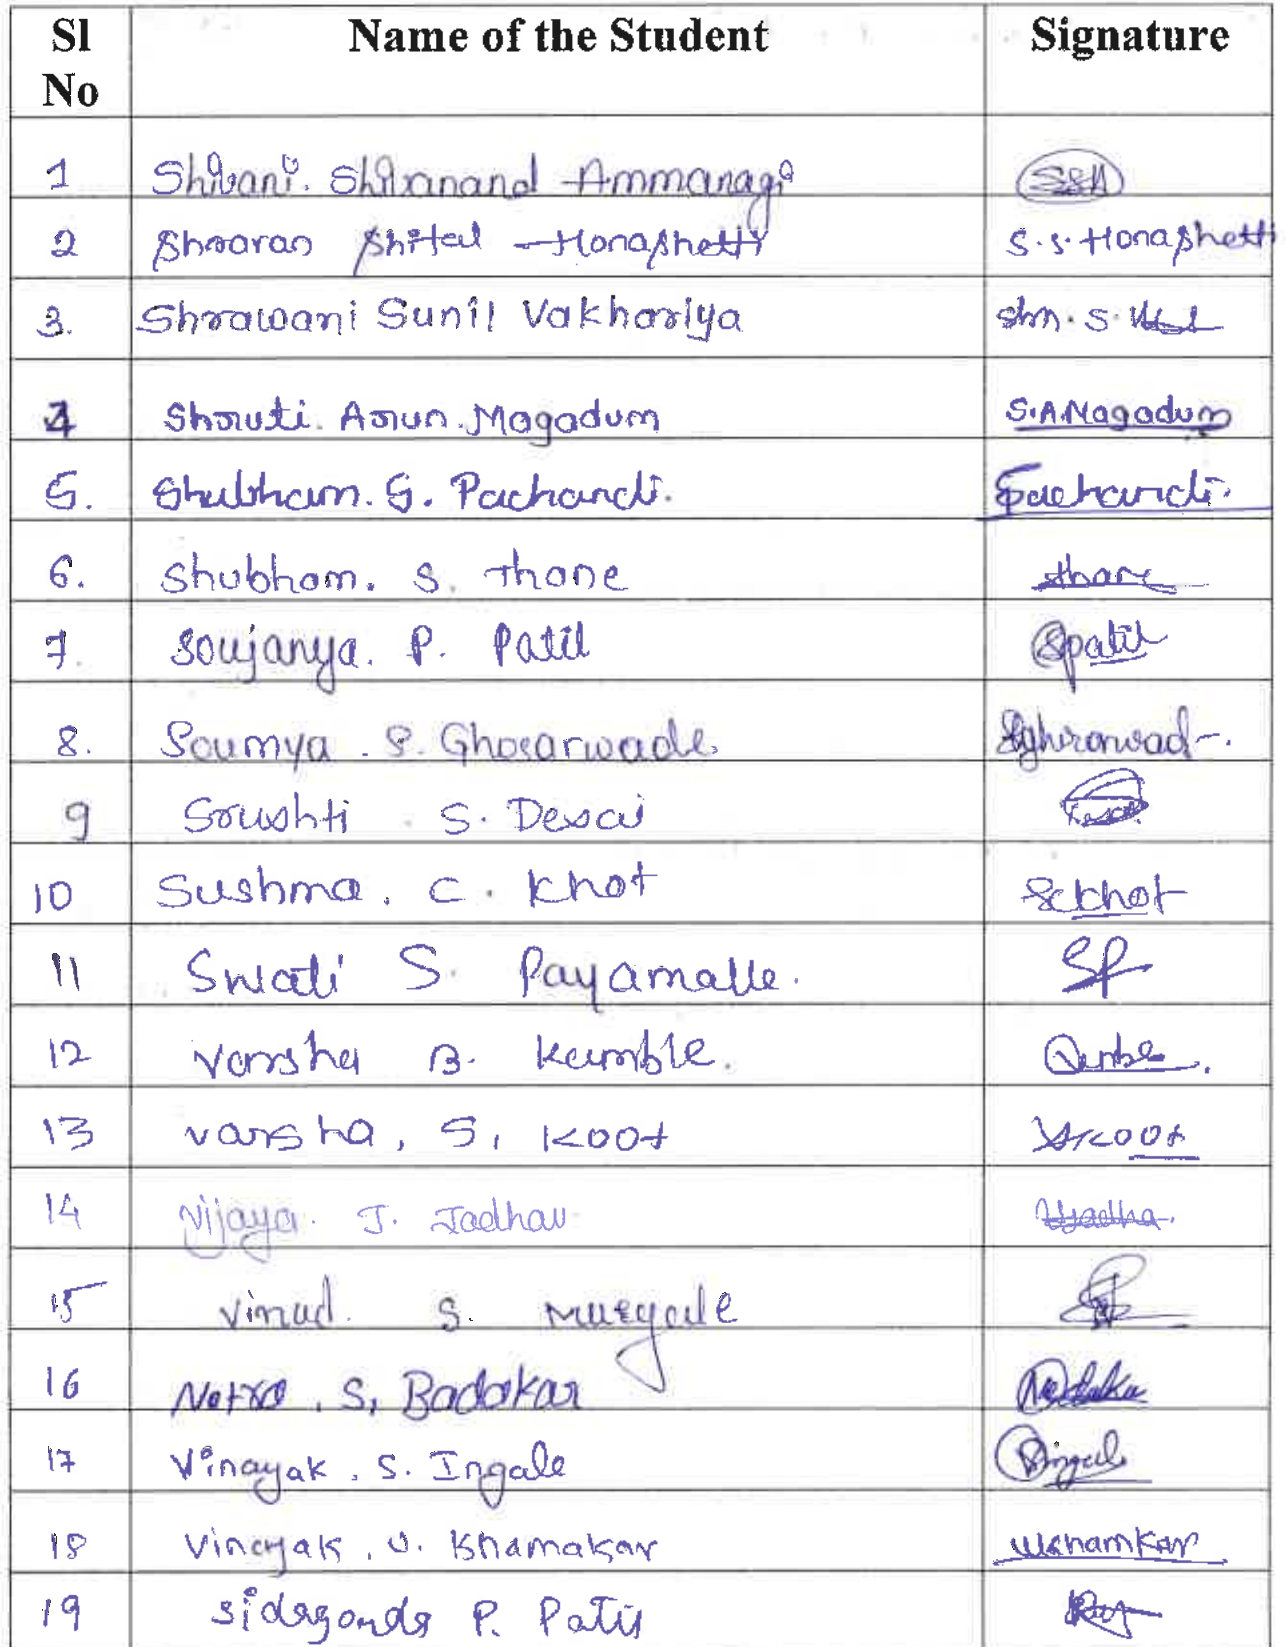 Sl No Name of the Student Signature
1 Shivani. Shivanand Ammanagi SSA
2 Shravan Shital Honashetty S.S. Honashetti
3. Shrawani Sunil Vakhariya Shr. S.
4 Shruti. Arun. Magadum S.A.Magadum
5. Shubham. S. Pachandi. Pachandi.
6. Shubham. S. Thane thane
7. Soujanya. P. Patil Spatil
8. Soumya. S. Ghosarwade.
9 Srushti. S. Desai
10 Sushma. C. Khot Sckhot
11 Swati S. Payamalle. SP
12 Varsha B. Kamble.
13 varsha, S, Koot VSKoot
14 Vijaya. J. Jadhav
15 Vinod. S.
16 Netra. S, Badakar
17 Vinayak. S. Ingale Singale
18 Vinayak. V. Khamakar VKhamkar
19 Sidagonda P. Patil